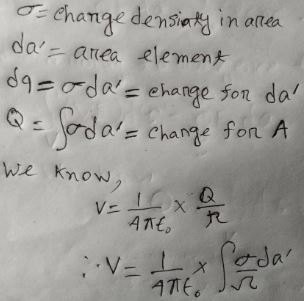 σ = change densiaty in area
da' = area element
dq = σda' = change for da'
Q = ∫σda' = change for A
We know,
V = 1/4πε₀ × Q/r
∴ V = 1/4πε₀ × ∫ σda'/r